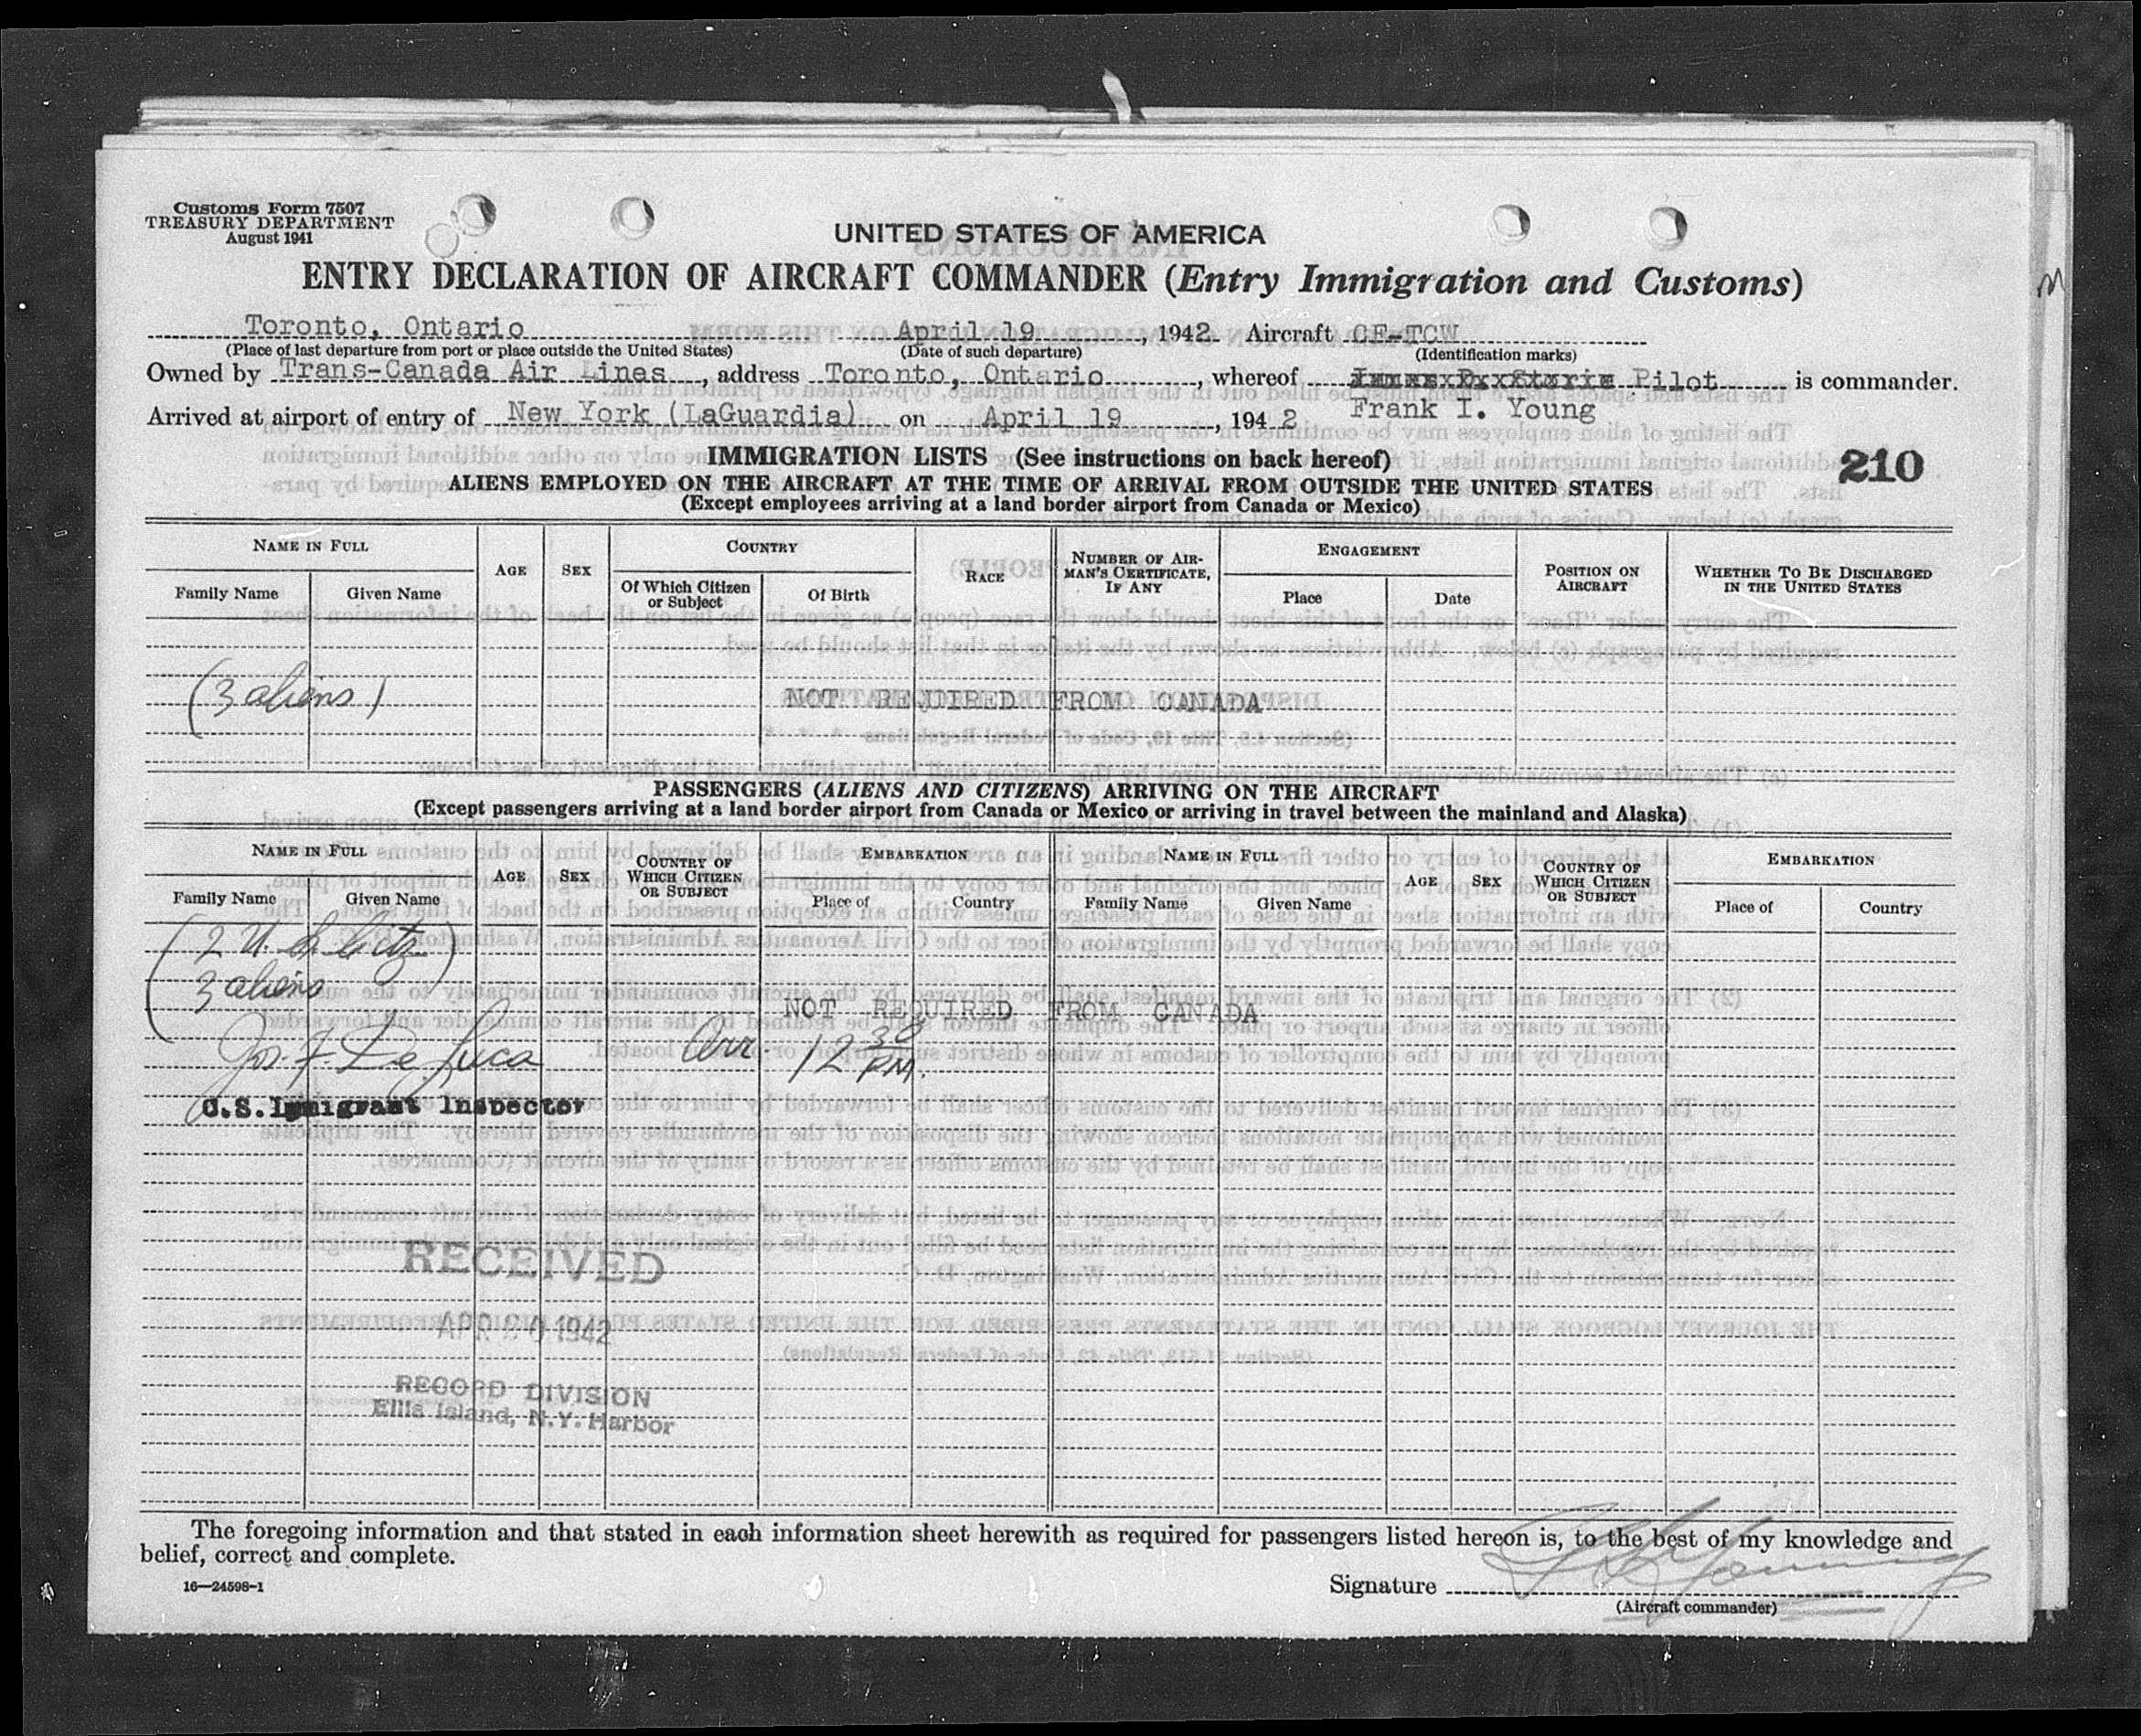 Customs Form 7507
TREASURY DEPARTMENT
August 1941
UNITED STATES OF AMERICA
ENTRY DECLARATION OF AIRCRAFT COMMANDER (Entry Immigration and Customs)
Toronto, Ontario April 19, 1942 Aircraft CF-TCW
(Place of last departure from port or place outside the United States) (Date of such departure) (Identification marks)
Owned by Trans-Canada Air Lines, address Toronto, Ontario, whereof Pilot is commander.
Arrived at airport of entry of New York (LaGuardia) on April 19, 1942 Frank I. Young
210
IMMIGRATION LISTS (See instructions on back hereof)
ALIENS EMPLOYED ON THE AIRCRAFT AT THE TIME OF ARRIVAL FROM OUTSIDE THE UNITED STATES
(Except employees arriving at a land border airport from Canada or Mexico)
NAME IN FULL AGE SEX COUNTRY RACE NUMBER OF AIRMAN'S CERTIFICATE, IF ANY ENGAGEMENT POSITION ON AIRCRAFT WHETHER TO BE DISCHARGED IN THE UNITED STATES
Family Name Given Name Of Which Citizen or Subject Of Birth Place Date
(3 aliens) NOT REQUIRED FROM CANADA
PASSENGERS (ALIENS AND CITIZENS) ARRIVING ON THE AIRCRAFT
(Except passengers arriving at a land border airport from Canada or Mexico or arriving in travel between the mainland and Alaska)
NAME IN FULL AGE SEX COUNTRY OF WHICH CITIZEN OR SUBJECT EMBARKATION NAME IN FULL AGE SEX COUNTRY OF WHICH CITIZEN OR SUBJECT EMBARKATION
Family Name Given Name Place of Country Family Name Given Name Place of Country
(2 U.S. Citz)
3 aliens
NOT REQUIRED FROM CANADA
Jos. F. De Luca Arr. 12 30 PM.
U.S. Immigrant Inspector
RECEIVED
APR 20 1942
RECORD DIVISION
Ellis Island, N.Y. Harbor
The foregoing information and that stated in each information sheet herewith as required for passengers listed hereon is, to the best of my knowledge and
belief, correct and complete.
16—24598-1
Signature
(Aircraft commander)